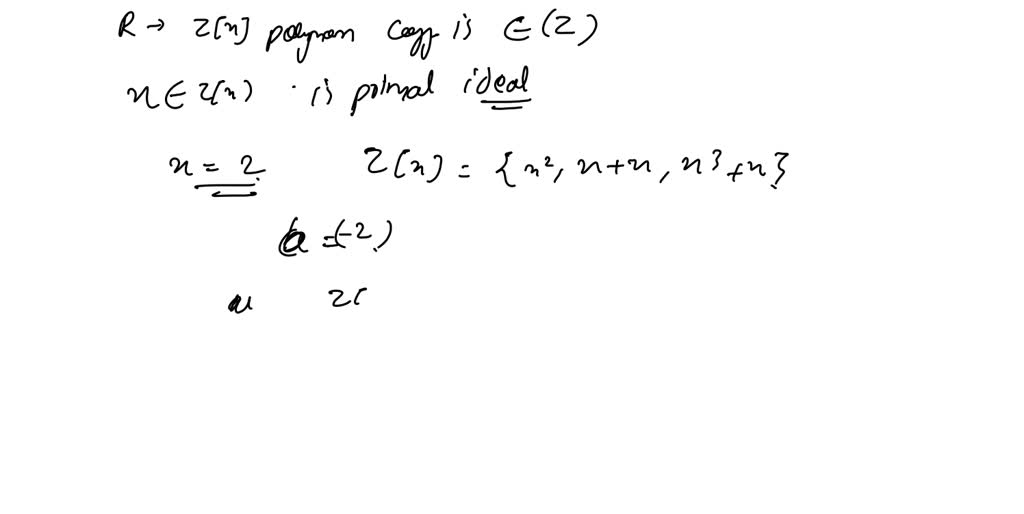 R → Z[x] polynom Coeff is ∈ (Z)
x ∈ Z(x) · is primal ideal
x = 2 Z(x) = {x², x+x, x³+x}
(a = (-2)
x Z[